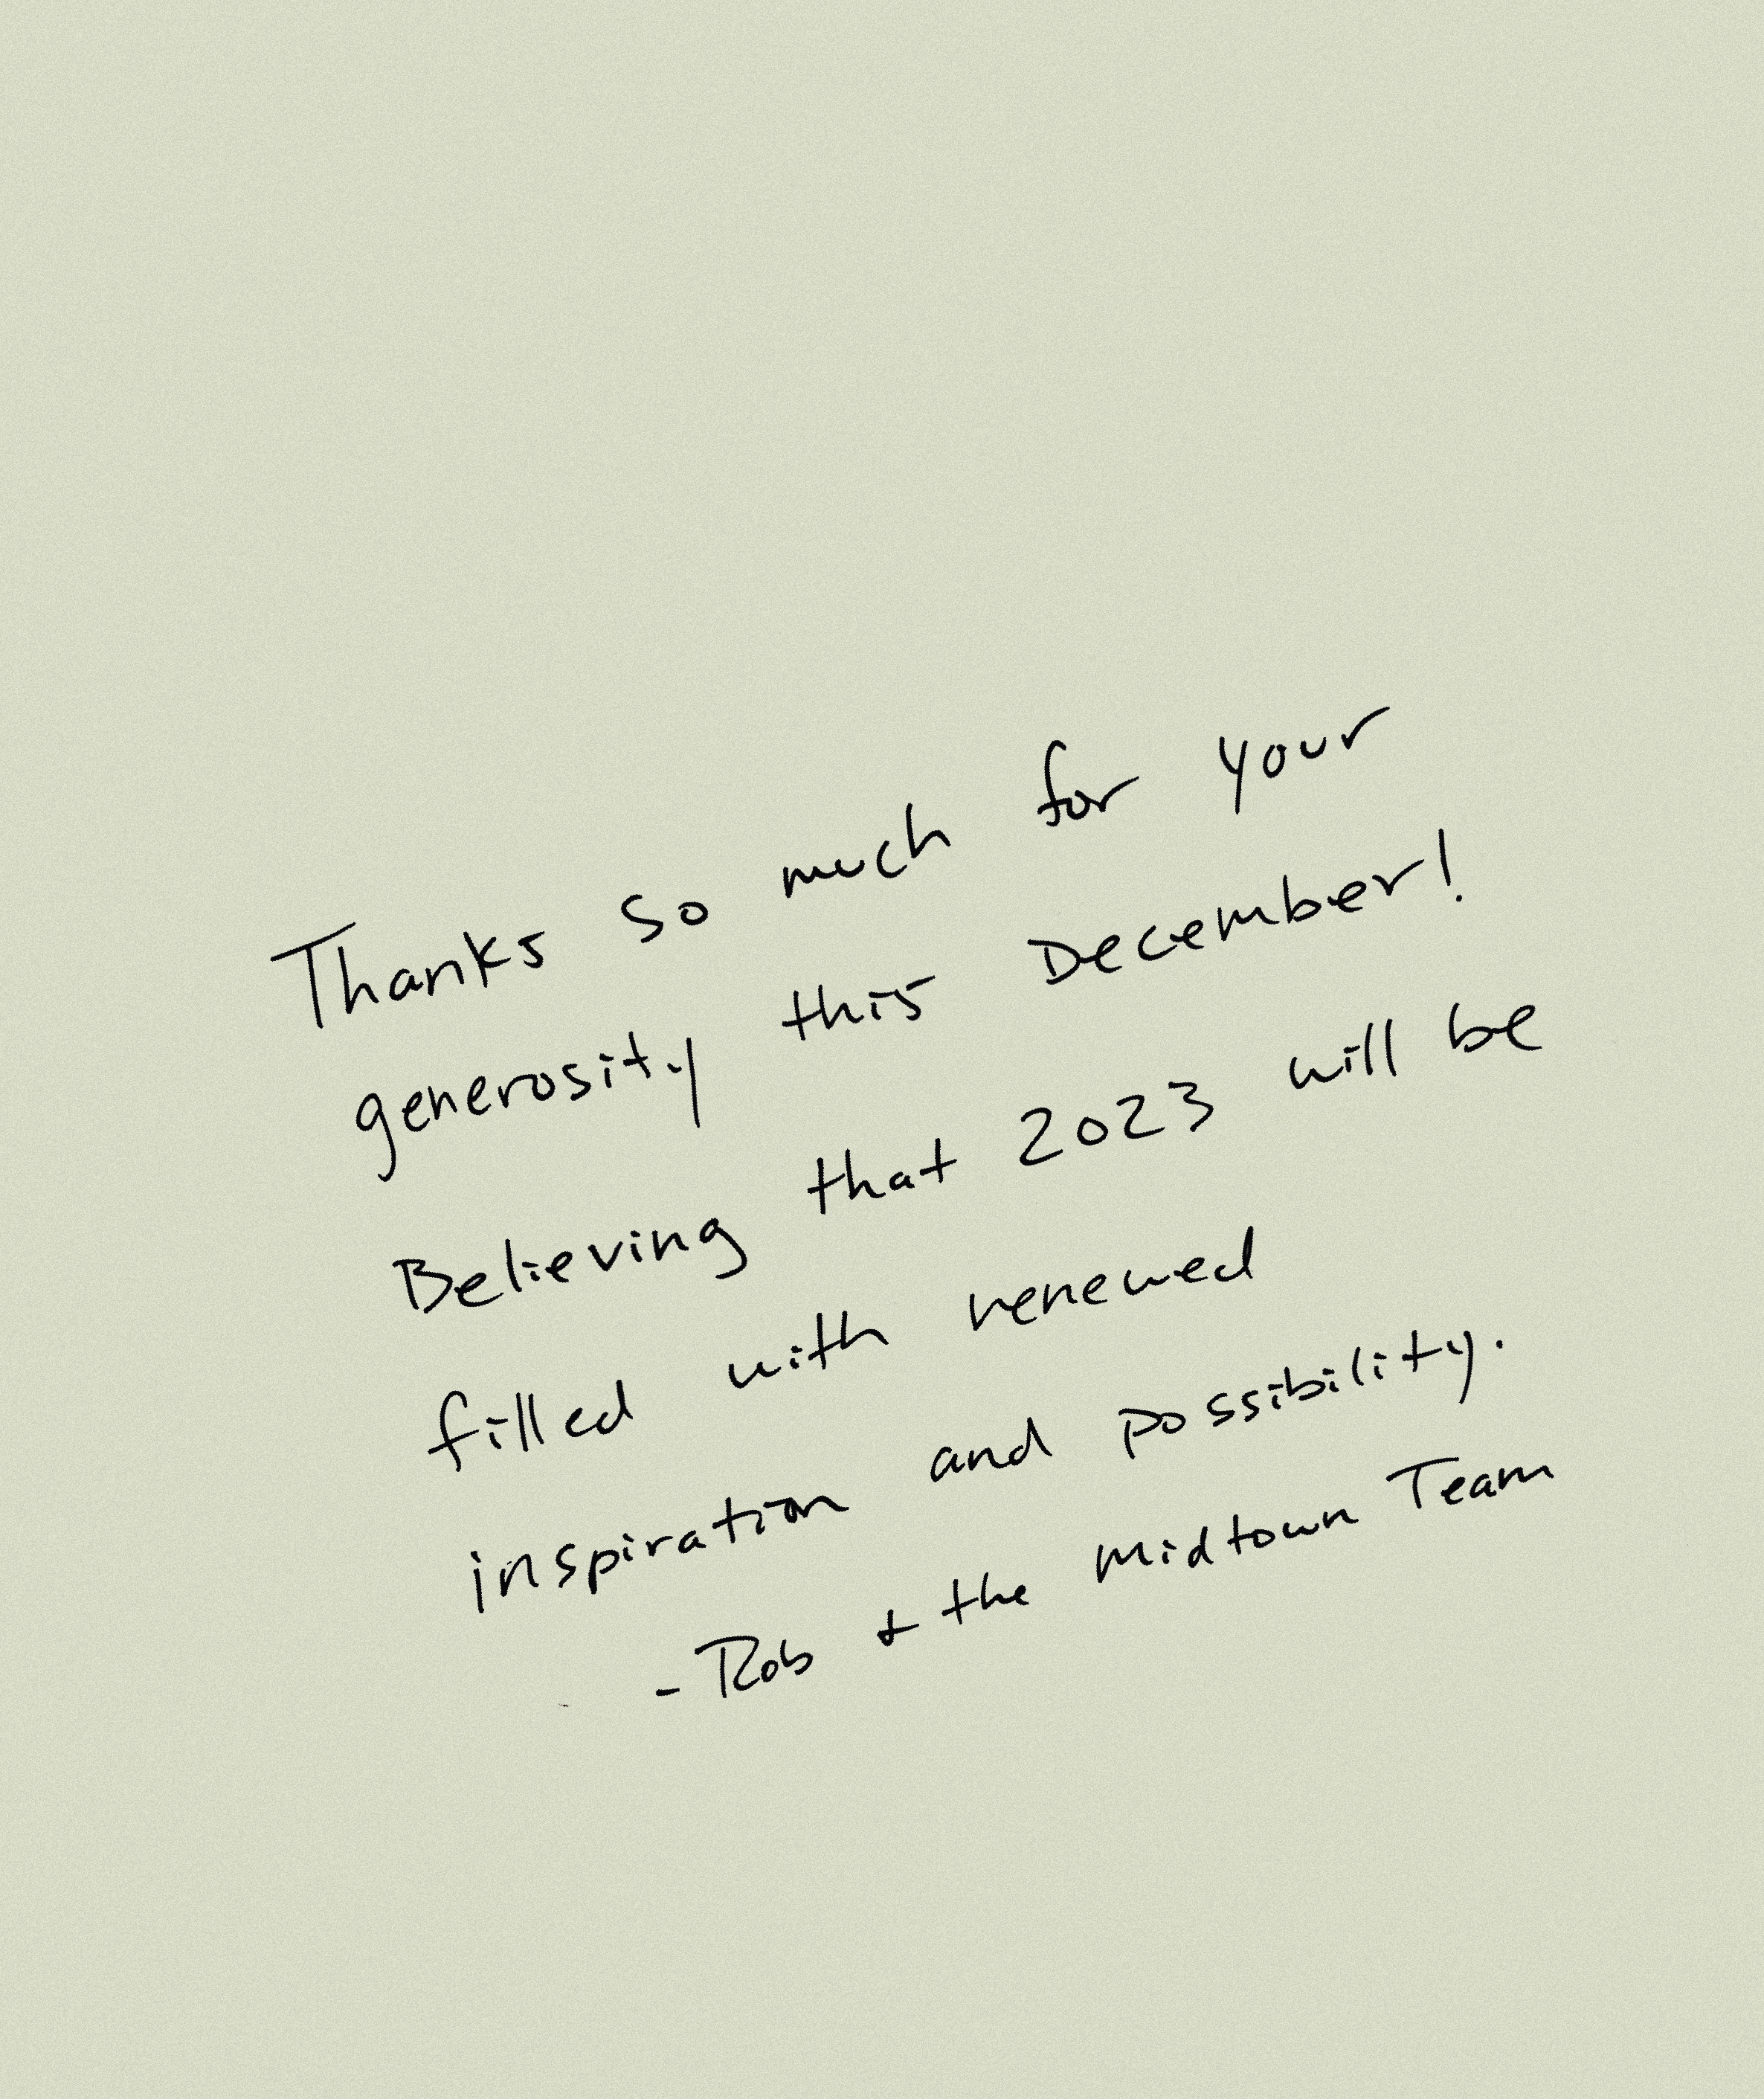 Thanks so much for your
generosity this December!
Believing that 2023 will be
filled with renewed
inspiration and possibility.
- Rob & the Midtown Team